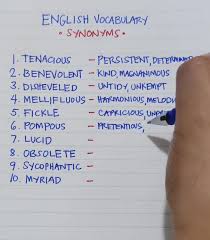 ENGLISH VOCABULARY
• SYNONYMS •
1. TENACIOUS – PERSISTENT, DETERMINED
2. BENEVOLENT – KIND, MAGNANIMOUS
3. DISHEVELED – UNTIDY, UNKEMPT
4. MELLIFLUOUS – HARMONIOUS,
5. FICKLE – CAPRICIOUS,
6. POMPOUS – PRETENTIOUS,
7. LUCID –
8. OBSOLETE –
9. SYCOPHANTIC –
10. MYRIAD –